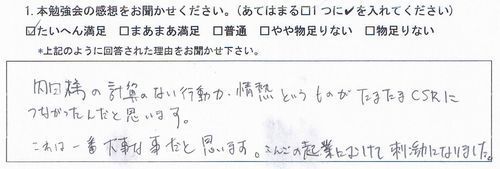 1. 本勉強会の感想をお聞かせください。(あてはまる□1つに✔を入れてください)
☑たいへん満足 □まあまあ満足 □普通 □やや物足りない □物足りない
*上記のように回答された理由をお聞かせ下さい。
内田様の計算のない行動力、情熱というものがたまたまCSRに
つながったんだと思います。
これは一番大事な事だと思います。こんごの起業にむけて刺激になりました。